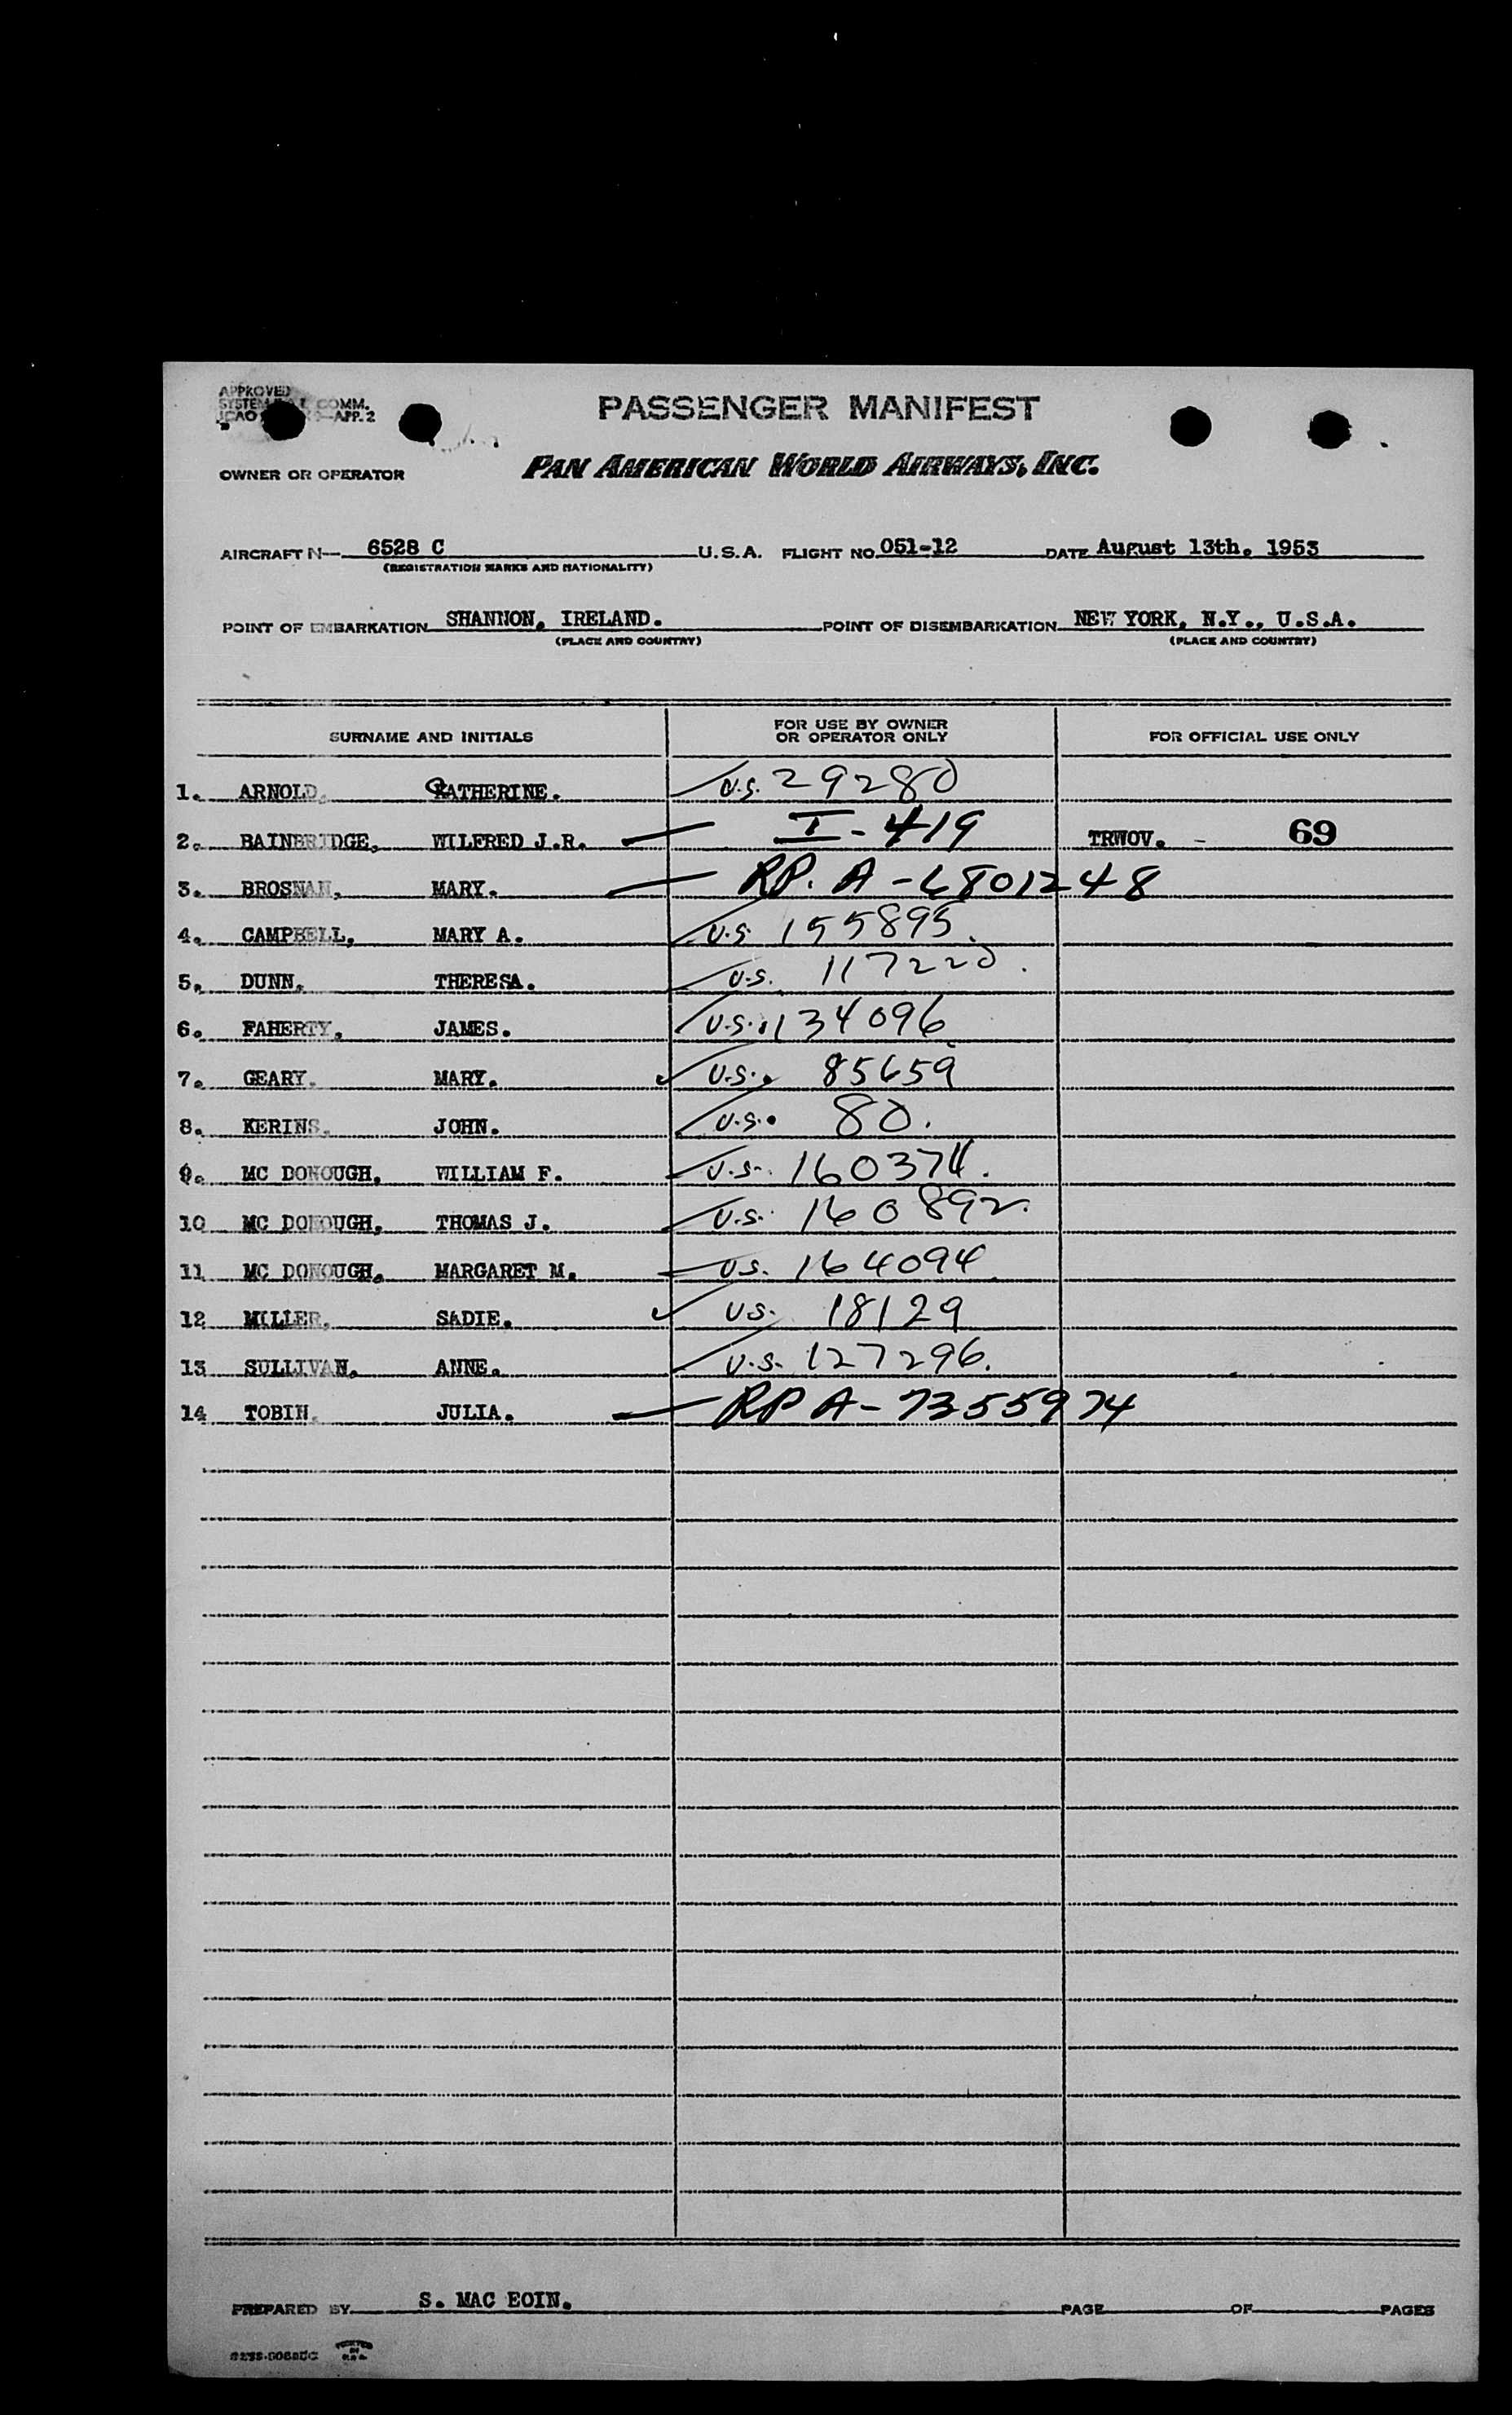 APPROVED
COMM.
APP. 2
PASSENGER MANIFEST
OWNER OR OPERATOR PAN AMERICAN WORLD AIRWAYS, INC.
AIRCRAFT N— 6528 C U.S.A. FLIGHT NO. 051-12 DATE August 13th. 1953
(REGISTRATION MARKS AND NATIONALITY)
POINT OF EMBARKATION SHANNON, IRELAND. POINT OF DISEMBARKATION NEW YORK, N.Y., U.S.A.
(PLACE AND COUNTRY) (PLACE AND COUNTRY)
SURNAME AND INITIALS FOR USE BY OWNER OR OPERATOR ONLY FOR OFFICIAL USE ONLY
1. ARNOLD, CATHERINE. U.S. 29280
2. BAINBRIDGE, WILFRED J.R. I-419 TRWOV. - 69
3. BROSNAN, MARY. RP. A-6801248
4. CAMPBELL, MARY A. U.S. 155895.
5. DUNN, THERESA. U.S. 117220.
6. FAHERTY, JAMES. U.S. 134096
7. GEARY. MARY. U.S. 85659
8. KERINS. JOHN. U.S. 80.
9. MC DONOUGH, WILLIAM F. U.S. 160374.
10 MC DONOUGH, THOMAS J. U.S. 160892.
11 MC DONOUGH, MARGARET M. U.S. 164094
12 MILLER. SADIE. US. 18129
13 SULLIVAN, ANNE. U.S. 127296.
14 TOBIN. JULIA. RP A-7355974
PREPARED BY S. MAC EOIN. PAGE OF PAGES